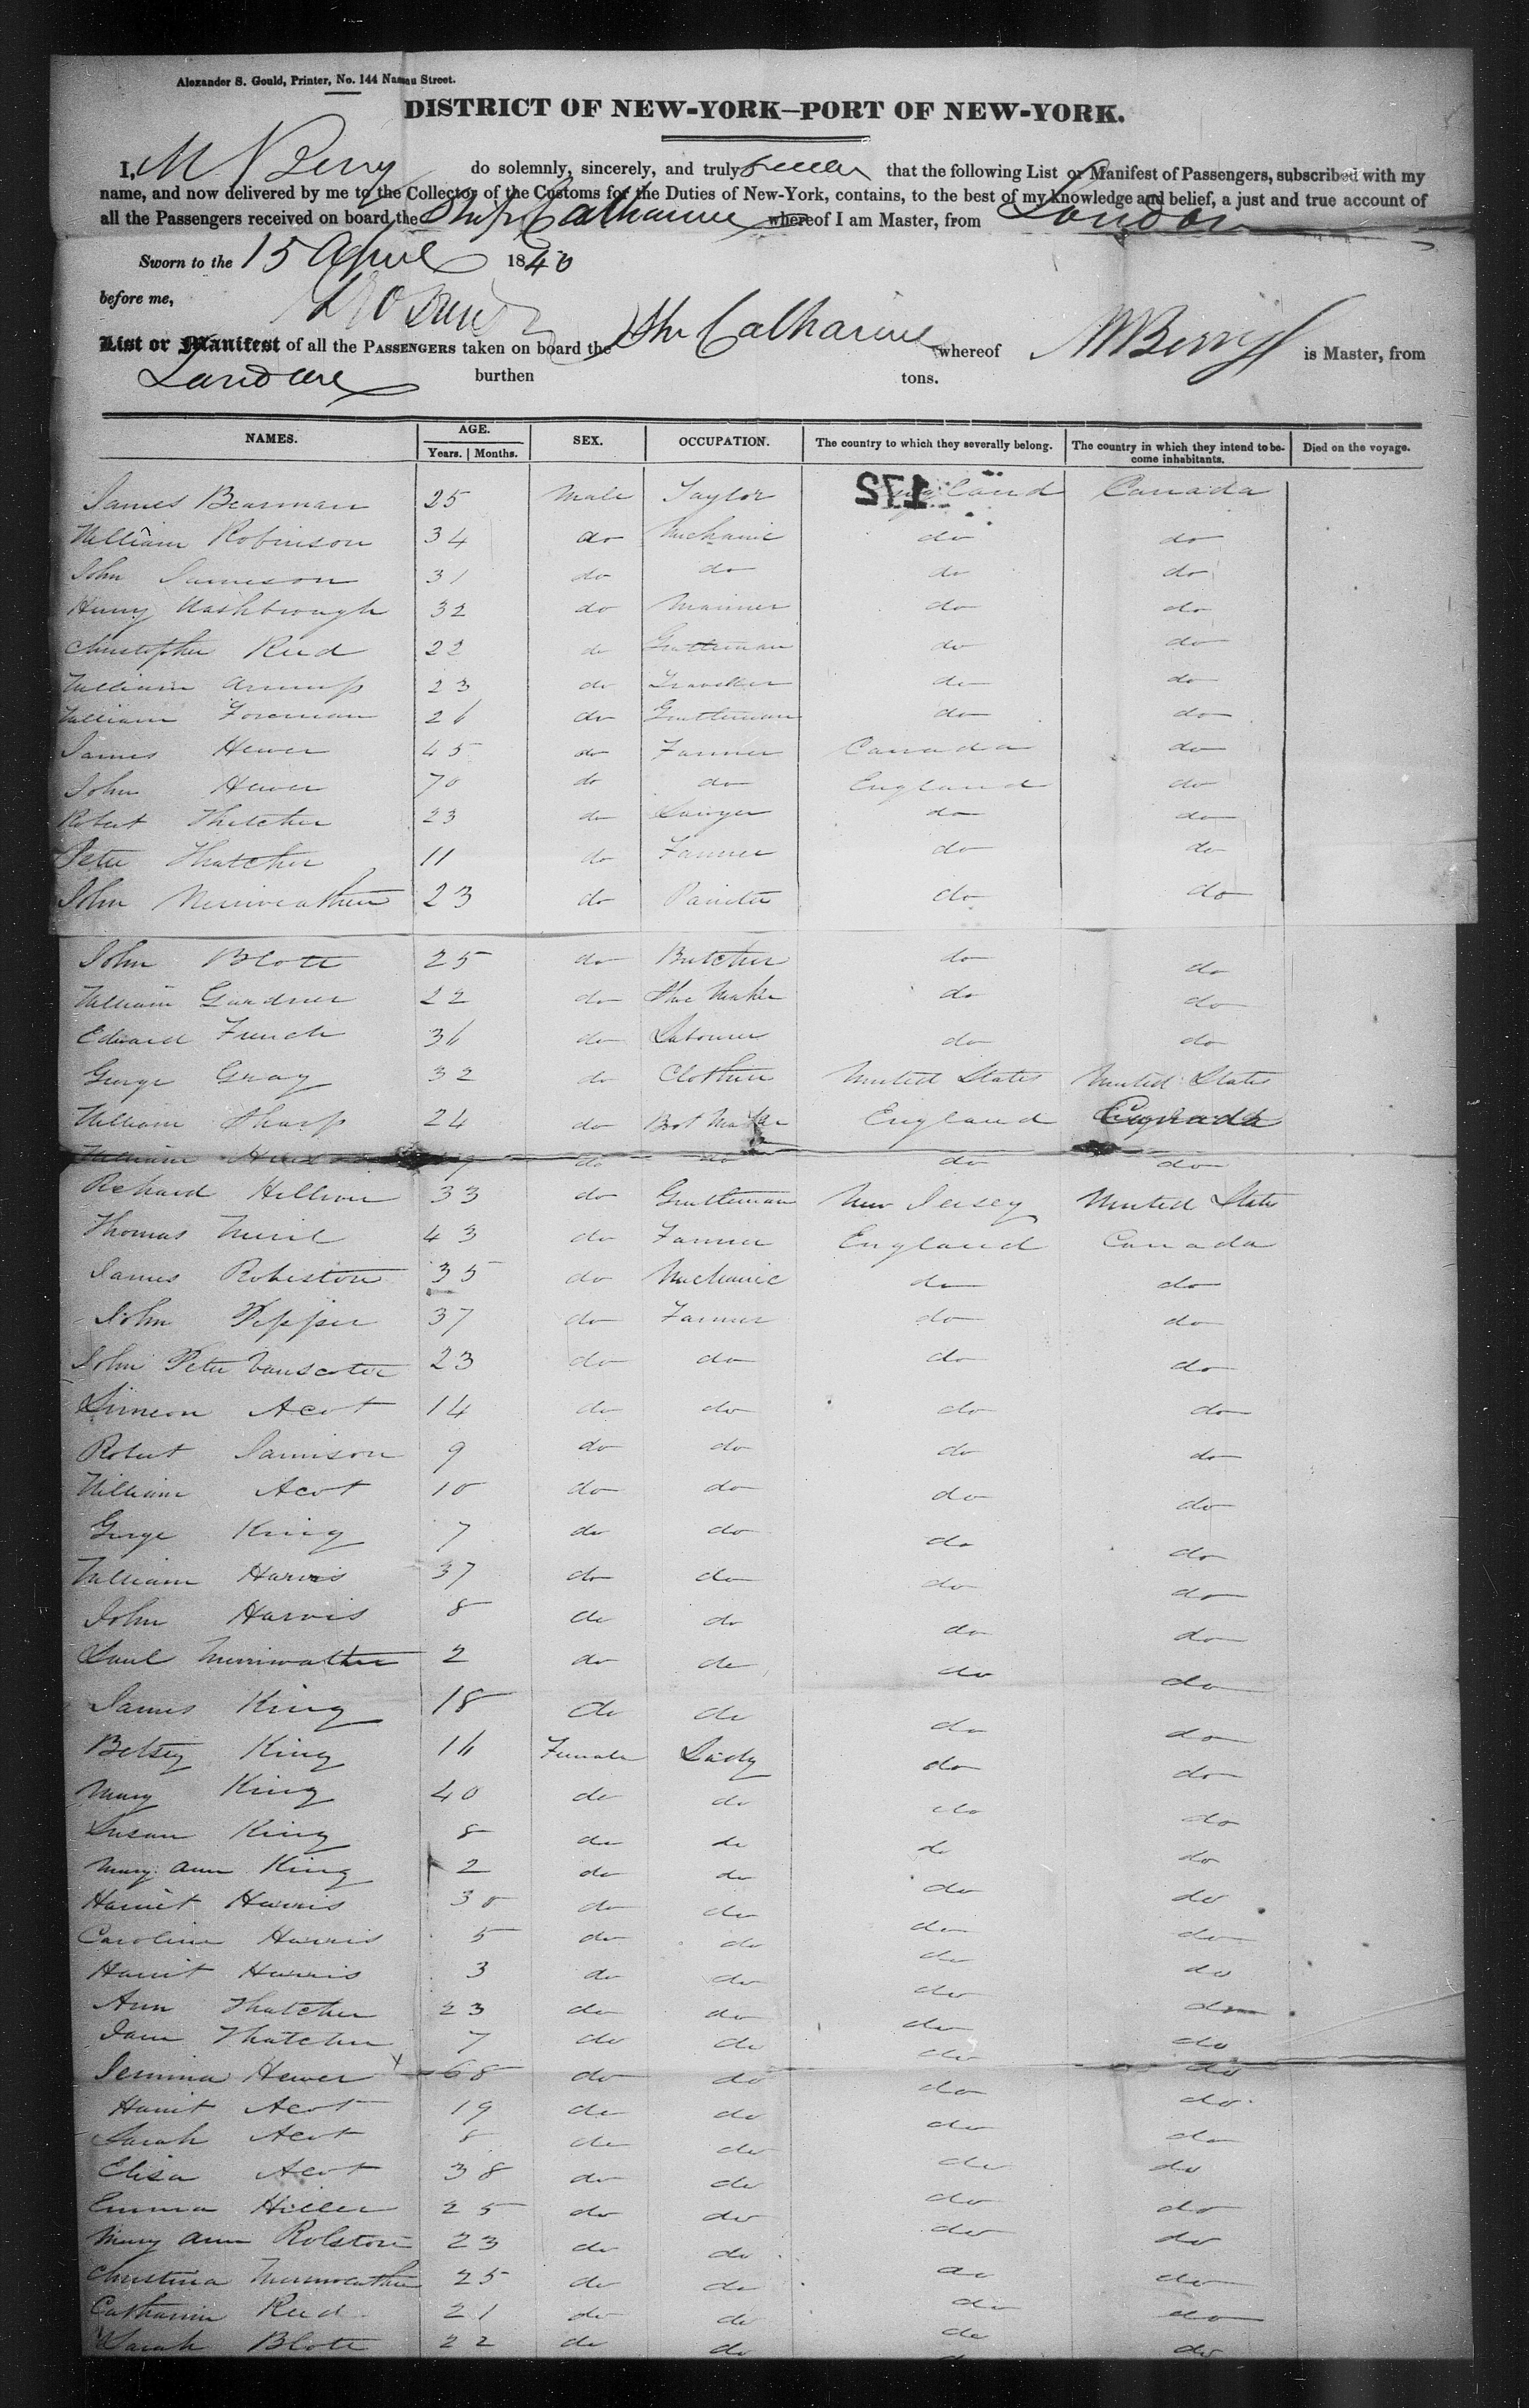 Alexander S. Gould, Printer, No. 144 Nassau Street.
DISTRICT OF NEW-YORK—PORT OF NEW-YORK.
I, M Berry do solemnly, sincerely, and truly swear that the following List or Manifest of Passengers, subscribed with my
name, and now delivered by me to the Collector of the Customs for the Duties of New-York, contains, to the best of my knowledge and belief, a just and true account of
all the Passengers received on board the Ship Catharine whereof I am Master, from London
Sworn to the 15 April 1840
before me,
List or Manifest of all the PASSENGERS taken on board the Shr Catharine whereof M Berry is Master, from
London burthen tons.
NAMES. AGE. SEX. OCCUPATION. The country to which they severally belong. The country in which they intend to become inhabitants. Died on the voyage.
Years. Months.
172
James Bearman 25 Male Taylor England Canada
William Robinson 34 do Mechanic do do
John Jameson 31 do do do do
Henry Washbrough 32 do Mariner do do
Christopher Reed 22 do Gentleman do do
William 23 do Traveller do do
William Foreman 26 do Gentleman do do
James Hewer 45 do Farmer Canada do
John Hewer 70 do do England do
Robert Thatcher 23 do Sawyer do do
Peter Thatcher 11 do Farmer do do
John Merriweather 23 do Painter do do
John Blott 25 do Butcher do do
William Gardner 22 do Shoe Maker do do
Edward French 36 do Labourer do do
George Gray 32 do Clothier United States United States
William Sharp 24 do Boot Maker England Canada
William do do do do
Richard Hillier 33 do Gentleman New Jersey United States
Thomas 43 do Farmer England Canada
James Robiston 35 do Mechanic do do
John Pepper 37 do Farmer do do
John Peter Vanscoter 23 do do do do
Simeon Acot 14 do do do do
Robert Jamison 9 do do do do
William Acot 10 do do do do
George King 7 do do do do
William Harris 37 do do do do
John Harris 8 do do do do
Saul Merriwather 2 do do do do
James King 18 do do do do
Betsey King 16 Female Lady do do
Mary King 40 do do do do
Susan King 8 do do do do
Mary Ann King 2 do do do do
Harriet Harris 30 do do do do
Caroline Harris 5 do do do do
Harriet Harris 3 do do do do
Ann Thatcher 23 do do do do
Jane Thatcher 7 do do do do
Jemima Hewer 68 do do do do
Harriet Acot 19 do do do do
Sarah Acot 8 do do do do
Elisa Acot 38 do do do do
Emma Hiller 25 do do do do
Mary Ann Rolston 23 do do do do
Christina Merriweather 25 do do do do
Catharine Reed 21 do do do do
Sarah Blott 22 do do do do